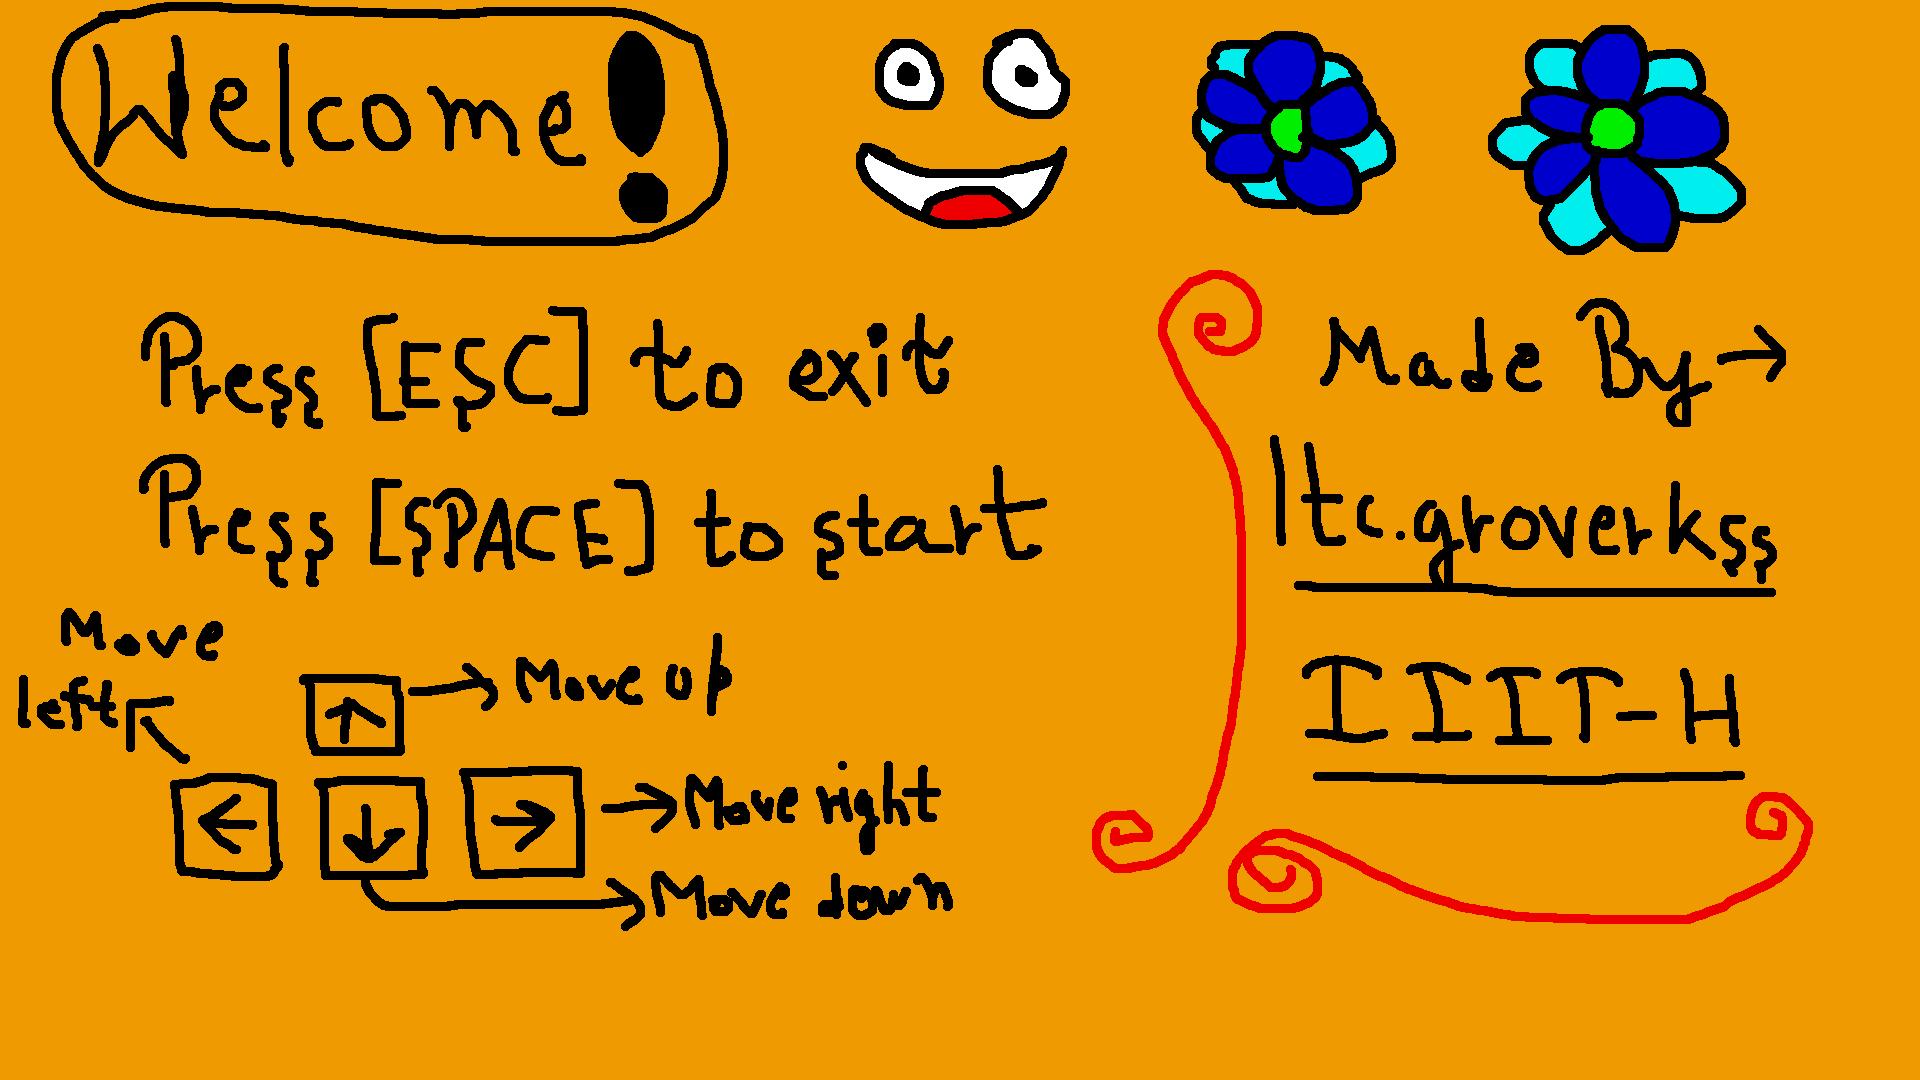 Welcome!
Press [ESC] to exit
Press [SPACE] to start
Move
left
↑ → Move up
← ↓ → → Move right
→ Move down
Made By →
ltc.groverkss
IIIT-H